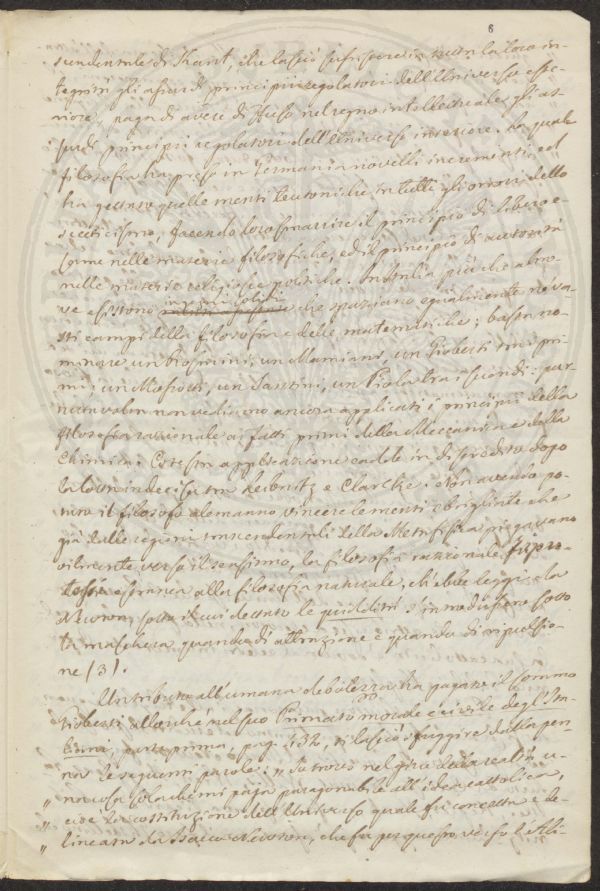 6
scendentale di Kant, che lasciò sussistere in tutta la loro in-
tegrità gli assurdi principii regolatori dell'Universo este-
riore, paga di avere diffuso nel regno intellettuale gli as-
surdi principii regolatori dell'Universo interiore. La quale
filosofia ha preso in Germania novelli incrementi, ed
ha gettato quelle menti teutoniche in tutti gli orrori dello
scetticismo, facendo loro smarrire il principio di libero e-
same nelle materie filosofiche, ed il principio di autorità
nelle materie religiose e politiche. In Italia più che altro-
ve esistono ingegni solidi che spaziano egualmente ne' va-
sti campi della filosofia e delle matematiche; basta no-
minare un Rosmini, un Mamiani, un Gioberti tra i pri-
mi; un Mosotti, un Santini, un Piola tra i secondi: pur
nondimeno non vediamo ancora applicati i principii della
filosofia razionale ai fatti primi della Meccanica e della
Chimica. Cotesta applicazione cadde in discredito dopo
la lotta indecisa tra Leibnitz e Clarcke: e non avendo po-
tuto il filosofo alemanno vincere le menti obrigliate che
già dalle regioni trascendentali della Metafisica piegavano
vilmente verso il sensismo, la filosofia razionale
estranea alla filosofia naturale, ch'ebbe leggi da
Newton, sotto il cui dettato le quiddità s'introdussero sotto
la maschera quando di attrazione e quando di ripulsio-
ne (3).
Un tributo all'umana debolezza ha pagato il sommo
Gioberti allorché nel suo Primato morale e civile degl'Ita-
liani, parte prima, pag. 132, si lasciò sfuggire dalla pen-
na le seguenti parole: „ Io trovo nel giro della realtà u-
„ na cosa sola che mi paja paragonabile all'idea cattolica,
„ cioè la costituzione dell'Universo quale fu concetta e de-
„ lineata da Isacco Newton, che fu per questo verso l'Ali-